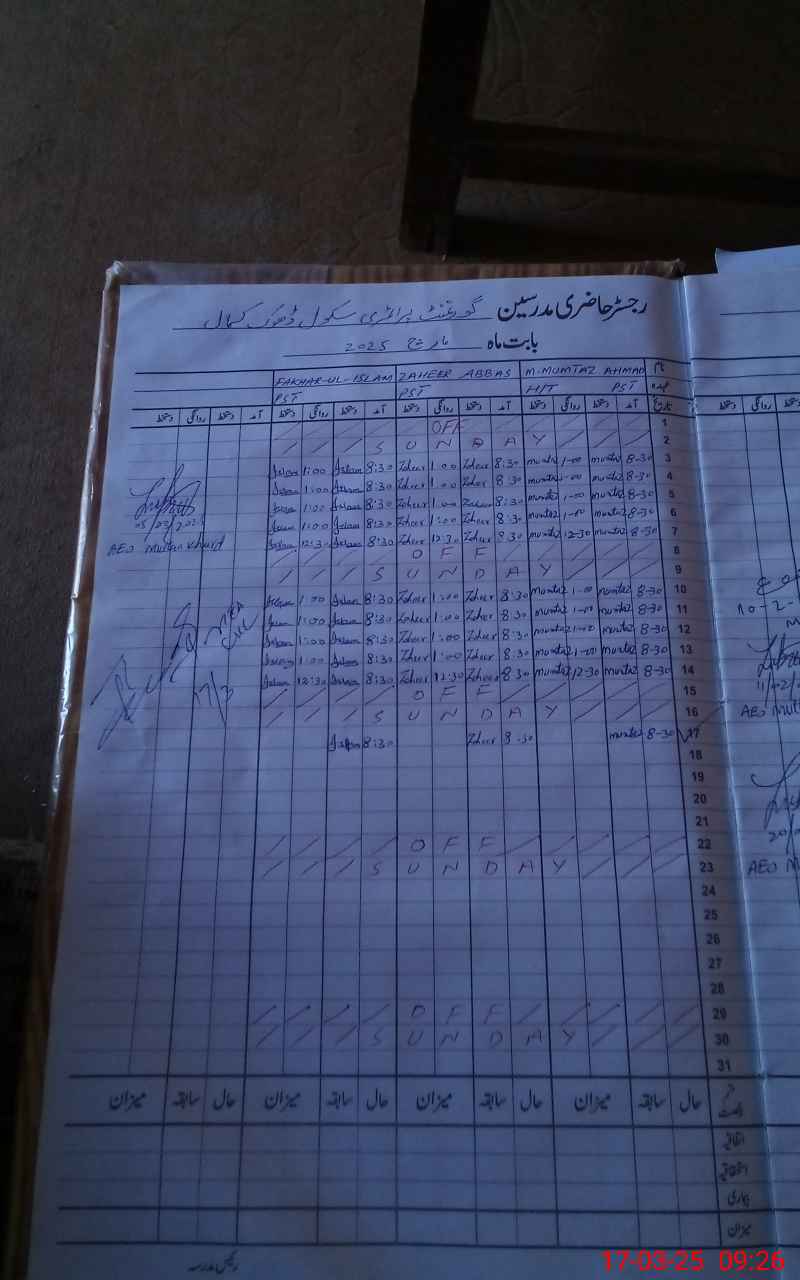 رجسٹر حاضری مدرسین گورنمنٹ پرائمری سکول ڈھوک کمال
بابت ماہ مارچ 2025
FAKHAR-UL-ISLAM ZAHEER ABBAS M.MUMTAZ AHMAD نام
PST PST H/T PST عہدہ
دستخط روانگی دستخط آمد دستخط روانگی دستخط آمد دستخط روانگی دستخط آمد دستخط روانگی دستخط آمد تاریخ
OFF 1
SUNDAY 2
Islam 1:00 Islam 8:30 Zaheer 1:00 Zaheer 8:30 mumtaz 1-00 mumtaz 8-30 3
Islam 1:00 Islam 8:30 Zaheer 1:00 Zaheer 8:30 mumtaz 1-00 mumtaz 8-30 4
Islam 1:00 Islam 8:30 Zaheer 1:00 Zaheer 8:30 mumtaz 1-00 mumtaz 8-30 5
Islam 1:00 Islam 8:30 Zaheer 1:00 Zaheer 8:30 mumtaz 1-00 mumtaz 8-30 6
05/03/2025
Islam 12:30 Islam 8:30 Zaheer 12:30 Zaheer 8:30 mumtaz 12-30 mumtaz 8-30 7
AEO Multan Khurd
OFF 8
SUNDAY 9
Islam 1:00 Islam 8:30 Zaheer 1:00 Zaheer 8:30 mumtaz 1-00 mumtaz 8-30 10
Islam 1:00 Islam 8:30 Zaheer 1:00 Zaheer 8:30 mumtaz 1-00 mumtaz 8-30 11
Islam 1:00 Islam 8:30 Zaheer 1:00 Zaheer 8:30 mumtaz 1-00 mumtaz 8-30 12
Islam 1:00 Islam 8:30 Zaheer 1:00 Zaheer 8:30 mumtaz 1-00 mumtaz 8-30 13
Islam 12:30 Islam 8:30 Zaheer 12:30 Zaheer 8:30 mumtaz 12-30 mumtaz 8-30 14
17/3
OFF 15
SUNDAY 16
Islam 8:30 Zaheer 8:30 mumtaz 8-30 17
18
19
20
21
OFF 22
SUNDAY 23
24
25
26
27
28
OFF 29
SUNDAY 30
31
میزان سابقہ حال میزان سابقہ حال میزان سابقہ حال میزان سابقہ حال قسم رخصت
اتفاقیہ
استحقاقیہ
بیماری
میزان
رئیس مدرسہ
دستخط روانگی دستخط
10-2-
AEO Mult
AEO M
17-03-25 09:26